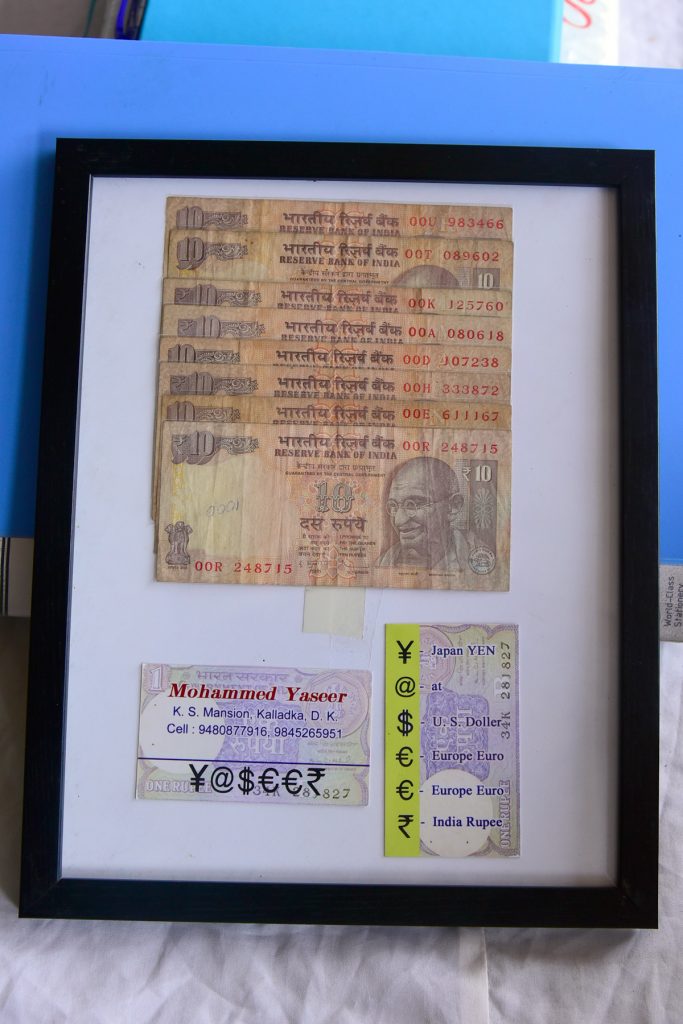 10 भारतीय रिज़र्व बैंक 00U 983466
RESERVE BANK OF INDIA
10 भारतीय रिज़र्व बैंक 00T 089602
RESERVE BANK OF INDIA
केन्द्रीय सरकार द्वारा प्रत्याभूत 10
GUARANTEED BY THE CENTRAL GOVERNMENT
10 भारतीय रिज़र्व बैंक 00K 125760
RESERVE BANK OF INDIA
₹10 भारतीय रिज़र्व बैंक 00A 080618
RESERVE BANK OF INDIA
10 भारतीय रिज़र्व बैंक 00D 107238
RESERVE BANK OF INDIA
10 भारतीय रिज़र्व बैंक 00H 333872
RESERVE BANK OF INDIA
10 भारतीय रिज़र्व बैंक 00E 611167
₹10 भारतीय रिज़र्व बैंक 00R 248715
RESERVE BANK OF INDIA
केन्द्रीय सरकार द्वारा प्रत्याभूत ₹10
GUARANTEED BY THE CENTRAL GOVERNMENT
10
दस रुपये
00R 248715
1 भारत सरकार
Mohammed Yaseer
K. S. Mansion, Kalladka, D. K.
Cell : 9480877916, 9845265951
¥@$€€₹
ONE RUPEE 34K 281827
¥ - Japan YEN
@ - at
$ - U. S. Doller
€ - Europe Euro
€ - Europe Euro
₹ - India Rupee
34K 281827
ONE RUPEE
World-Class
Stationery